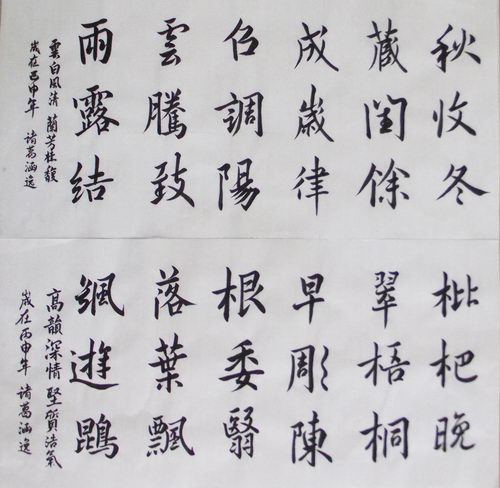 秋收冬
藏閏餘
成歲律
召調陽
雲騰致
雨露結
雲白風清 蘭芳桂馥
歲在己申年 諸葛涵逸
枇杷晚
翠梧桐
早彫陳
根委翳
落葉飄
颻遊鵾
高韻深情 堅質浩氣
歲在丙申年 諸葛涵逸